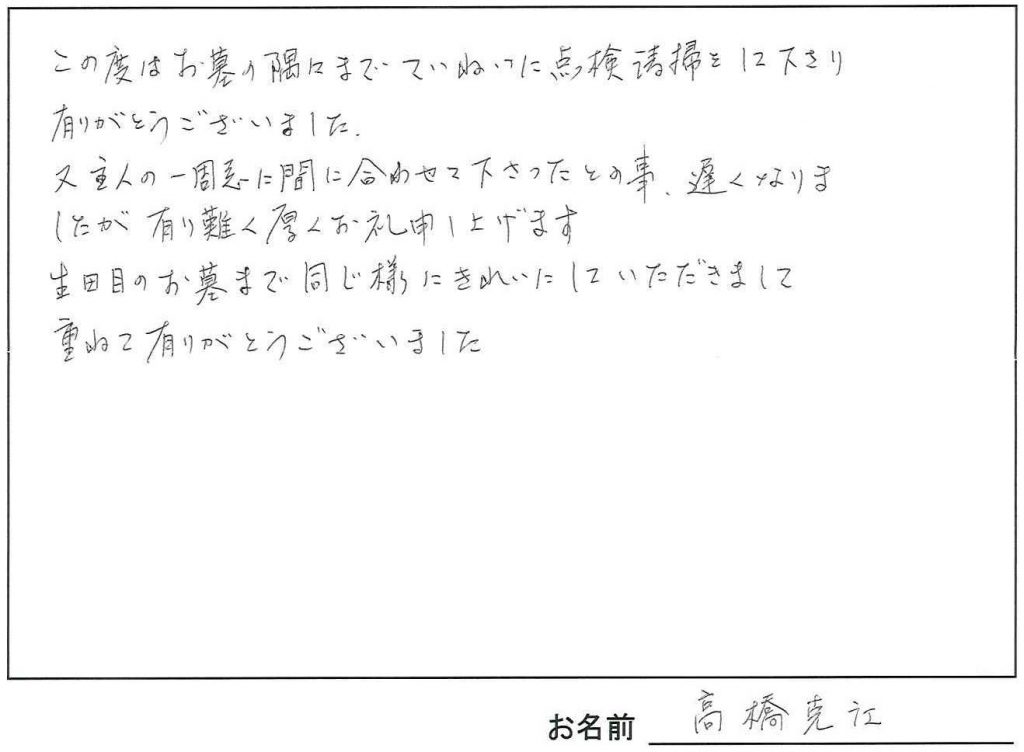 この度はお墓の隅々までていねいに点検清掃をして下さり
有りがとうございました.
又主人の一周忌に間に合わせて下さったとの事、遅くなりま
したが有り難く厚くお礼申し上げます
生田目のお墓まで同じ様にきれいにしていただきまして
重ねて有りがとうございました
お名前 高橋克江